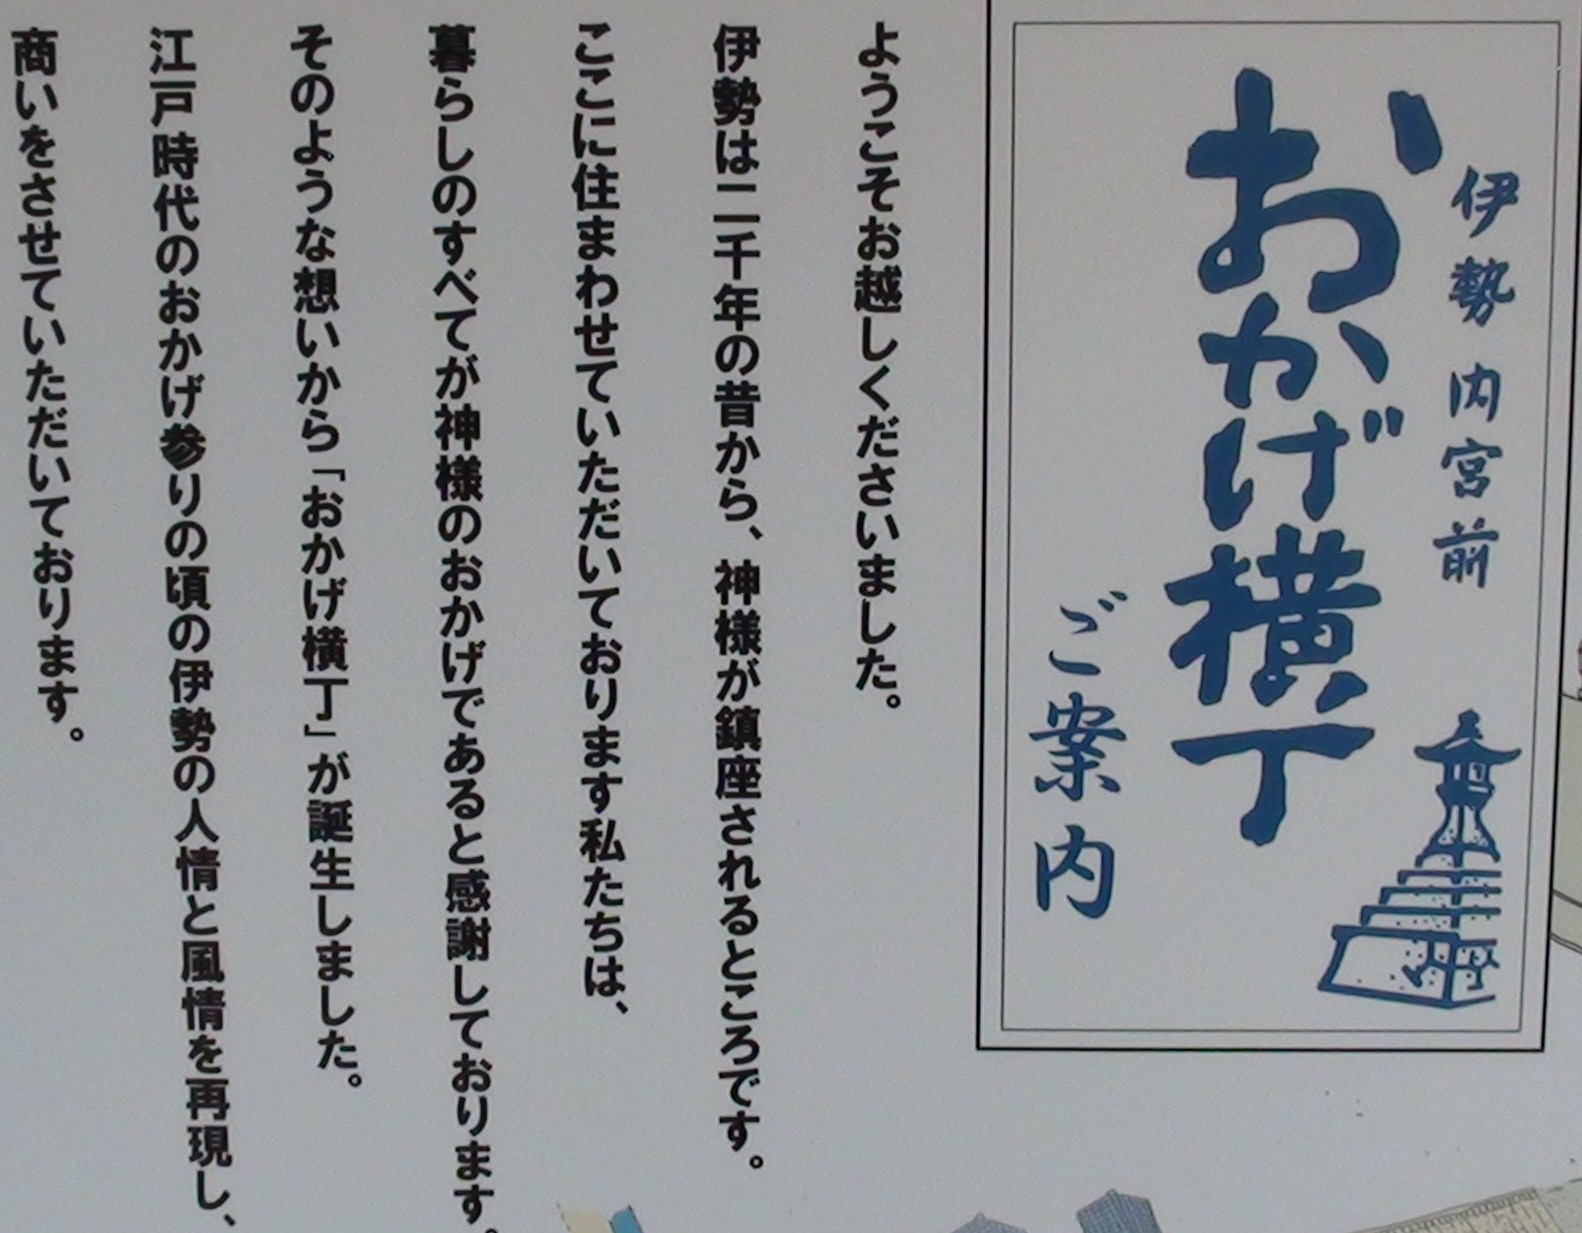 伊勢内宮前
おかげ横丁
ご案内
ようこそお越しくださいました。
伊勢は二千年の昔から、神様が鎮座されるところです。
ここに住まわせていただいております私たちは、
暮らしのすべてが神様のおかげであると感謝しております。
そのような想いから「おかげ横丁」が誕生しました。
江戸時代のおかげ参りの頃の伊勢の人情と風情を再現し、
商いをさせていただいております。